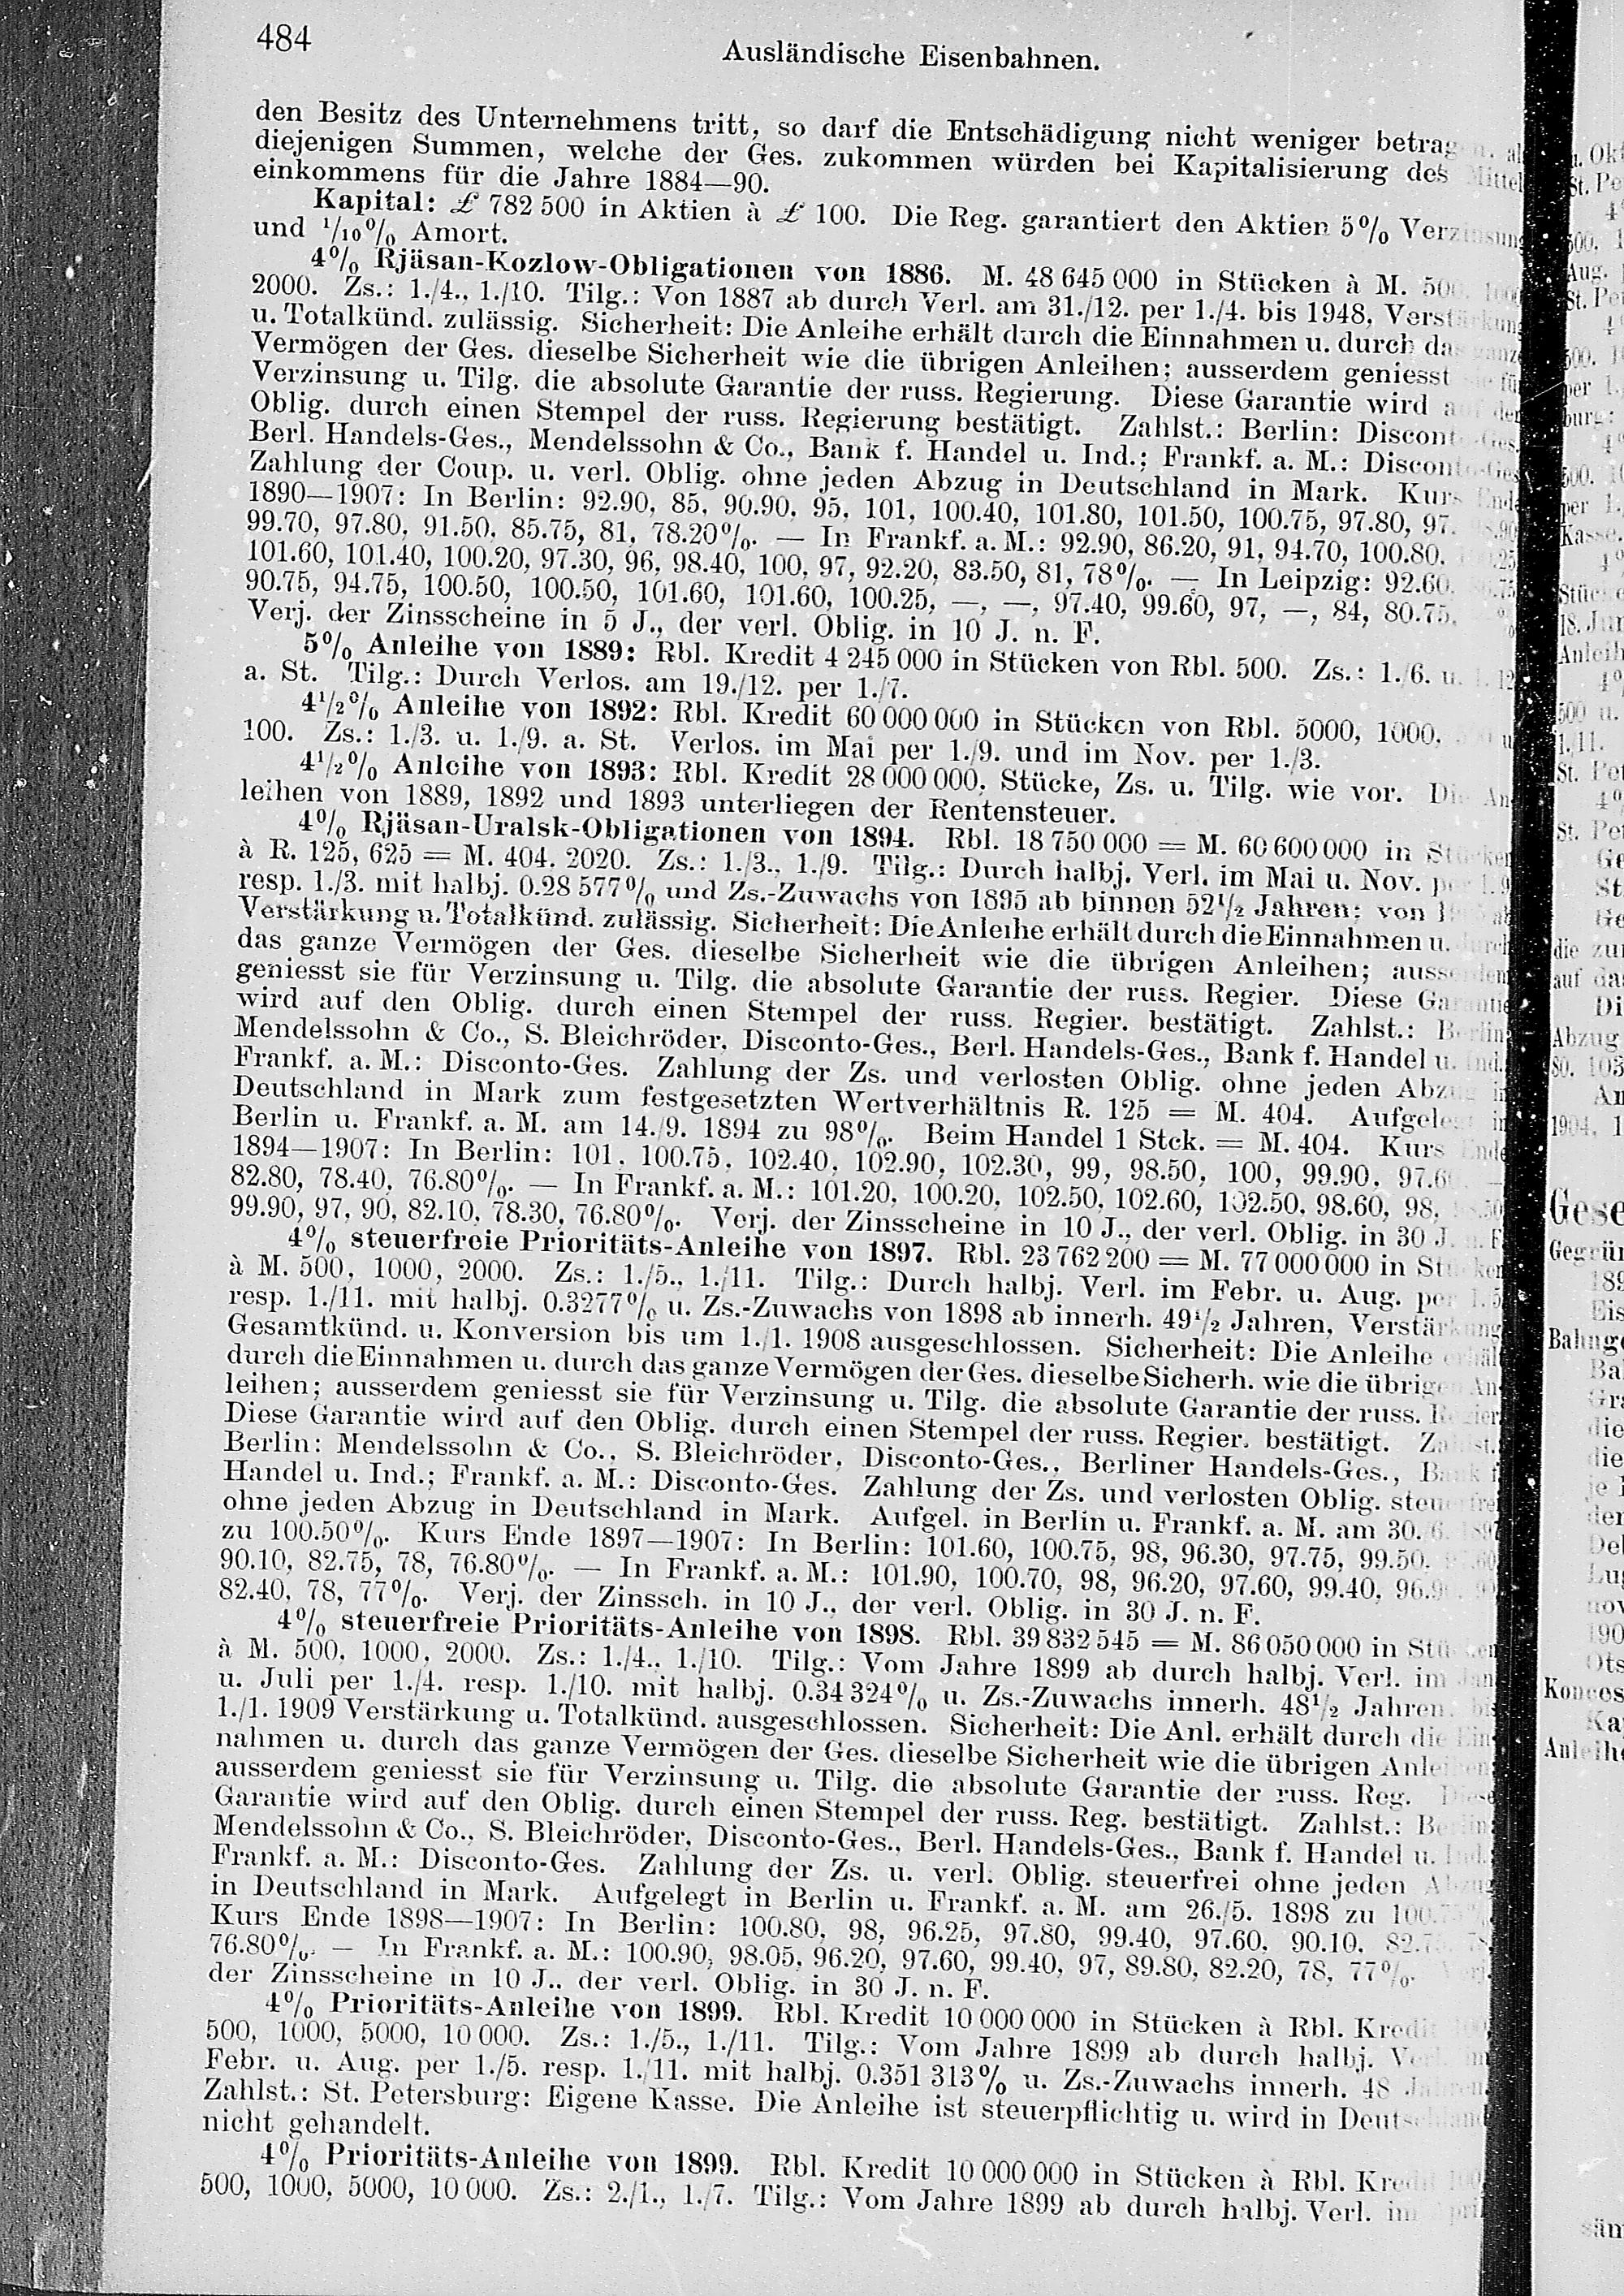 484
Ausländische Eisenbahnen.
den Besitz des Unternehmens tritt, so darf die Entschädigung nicht weniger betragen, als
diejenigen Summen, welche der Ges. zukommen würden bei Kapitalisierung des Mittel
einkommens für die Jahre 1884—90.
Kapital: £ 782 500 in Aktien à £ 100. Die Reg. garantiert den Aktien 5% Verzinsung
und 1/10% Amort.
4% Rjäsan-Kozlow-Obligationen von 1886. M. 48 645 000 in Stücken à M. 500, 1000
2000. Zs.: 1./4., 1./10. Tilg.: Von 1887 ab durch Verl. am 31./12. per 1./4. bis 1948, Verstärkung
u. Totalkünd. zulässig. Sicherheit: Die Anleihe erhält durch die Einnahmen u. durch das ganze
Vermögen der Ges. dieselbe Sicherheit wie die übrigen Anleihen; ausserdem geniesst sie für
Verzinsung u. Tilg. die absolute Garantie der russ. Regierung. Diese Garantie wird auf den
Oblig. durch einen Stempel der russ. Regierung bestätigt. Zahlst.: Berlin: Disconto-Ges.
Berl. Handels-Ges., Mendelssohn & Co., Bank f. Handel u. Ind.; Frankf. a. M.: Disconto-Ges
Zahlung der Coup. u. verl. Oblig. ohne jeden Abzug in Deutschland in Mark. Kurs Ende
1890—1907: In Berlin: 92.90, 85, 90.90, 95, 101, 100.40, 101.80, 101.50, 100.75, 97.80, 97.
99.70, 97.80, 91.50, 85.75, 81, 78.20%. — In Frankf. a. M.: 92.90, 86.20, 91, 94.70, 100.80,
101.60, 101.40, 100.20, 97.30, 96, 98.40, 100, 97, 92.20, 83.50, 81, 78%. — In Leipzig: 92.60,
90.75, 94.75, 100.50, 100.50, 101.60, 101.60, 100.25, —, —, 97.40, 99.60, 97, —, 84, 80.75,
Verj. der Zinsscheine in 5 J., der verl. Oblig. in 10 J. n. F.
5% Anleihe von 1889: Rbl. Kredit 4 245 000 in Stücken von Rbl. 500. Zs.: 1./6. u. 1. 12
a. St. Tilg.: Durch Verlos. am 19./12. per 1./7.
4 1/2% Anleihe von 1892: Rbl. Kredit 60 000 000 in Stücken von Rbl. 5000, 1000, u
100. Zs.: 1./3. u. 1./9. a. St. Verlos. im Mai per 1./9. und im Nov. per 1./3.
4 1/2% Anleihe von 1893: Rbl. Kredit 28 000 000, Stücke, Zs. u. Tilg. wie vor. Die An
leihen von 1889, 1892 und 1893 unterliegen der Rentensteuer.
4% Rjäsan-Uralsk-Obligationen von 1894. Rbl. 18 750 000 = M. 60 600 000 in Stücken
à R. 125, 625 = M. 404, 2020. Zs.: 1./3., 1./9. Tilg.: Durch halbj. Verl. im Mai u. Nov. per 1.9
resp. 1./3. mit halbj. 0.28 577% und Zs.-Zuwachs von 1895 ab binnen 52 1/2 Jahren; von ab
Verstärkung u. Totalkünd. zulässig. Sicherheit: Die Anleihe erhält durch die Einnahmen u. durch
das ganze Vermögen der Ges. dieselbe Sicherheit wie die übrigen Anleihen; ausserdem
geniesst sie für Verzinsung u. Tilg. die absolute Garantie der russ. Regier. Diese Garantie
wird auf den Oblig. durch einen Stempel der russ. Regier. bestätigt. Zahlst.: Berlin
Mendelssohn & Co., S. Bleichröder, Disconto-Ges., Berl. Handels-Ges., Bank f. Handel u. Ind.
Frankf. a. M.: Disconto-Ges. Zahlung der Zs. und verlosten Oblig. ohne jeden Abzug in
Deutschland in Mark zum festgesetzten Wertverhältnis R. 125 = M. 404. Aufgelegt in
Berlin u. Frankf. a. M. am 14./9. 1894 zu 98%. Beim Handel 1 Stck. = M. 404. Kurs Ende
1894—1907: In Berlin: 101, 100.75, 102.40, 102.90, 102.30, 99, 98.50, 100, 99.90, 97.60
82.80, 78.40, 76.80%. — In Frankf. a. M.: 101.20, 100.20, 102.50, 102.60, 102.50, 98.60, 98,
99.90, 97, 90, 82.10, 78.30, 76.80%. Verj. der Zinsscheine in 10 J., der verl. Oblig. in 30 J. n. F
4% steuerfreie Prioritäts-Anleihe von 1897. Rbl. 23 762 200 = M. 77 000 000 in Stücken
à M. 500, 1000, 2000. Zs.: 1./5., 1./11. Tilg.: Durch halbj. Verl. im Febr. u. Aug. per 1.5
resp. 1./11. mit halbj. 0.3277% u. Zs.-Zuwachs von 1898 ab innerh. 49 1/2 Jahren, Verstärkung
Gesamtkünd. u. Konversion bis um 1./1. 1908 ausgeschlossen. Sicherheit: Die Anleihe erhält
durch die Einnahmen u. durch das ganze Vermögen der Ges. dieselbe Sicherh. wie die übrigen An
leihen; ausserdem geniesst sie für Verzinsung u. Tilg. die absolute Garantie der russ. Regier
Diese Garantie wird auf den Oblig. durch einen Stempel der russ. Regier. bestätigt. Zahlst.
Berlin: Mendelssohn & Co., S. Bleichröder, Disconto-Ges., Berliner Handels-Ges., Bank f
Handel u. Ind.; Frankf. a. M.: Disconto-Ges. Zahlung der Zs. und verlosten Oblig. steuerfrei
ohne jeden Abzug in Deutschland in Mark. Aufgel. in Berlin u. Frankf. a. M. am 30./6. 1897
zu 100.50%. Kurs Ende 1897—1907: In Berlin: 101.60, 100.75, 98, 96.30, 97.75, 99.50,
90.10, 82.75, 78, 76.80%. — In Frankf. a. M.: 101.90, 100.70, 98, 96.20, 97.60, 99.40, 96.90,
82.40, 78, 77%. Verj. der Zinssch. in 10 J., der verl. Oblig. in 30 J. n. F.
4% steuerfreie Prioritäts-Anleihe von 1898. Rbl. 39 832 545 = M. 86 050 000 in Stücken
à M. 500, 1000, 2000. Zs.: 1./4., 1./10. Tilg.: Vom Jahre 1899 ab durch halbj. Verl. im Jan
u. Juli per 1./4. resp. 1./10. mit halbj. 0.34 324% u. Zs.-Zuwachs innerh. 48 1/2 Jahren, bis
1./1. 1909 Verstärkung u. Totalkünd. ausgeschlossen. Sicherheit: Die Anl. erhält durch die Ein
nahmen u. durch das ganze Vermögen der Ges. dieselbe Sicherheit wie die übrigen Anleihen
ausserdem geniesst sie für Verzinsung u. Tilg. die absolute Garantie der russ. Reg. Diese
Garantie wird auf den Oblig. durch einen Stempel der russ. Reg. bestätigt. Zahlst.: Berlin
Mendelssohn & Co., S. Bleichröder, Disconto-Ges., Berl. Handels-Ges., Bank f. Handel u. Ind.
Frankf. a. M.: Disconto-Ges. Zahlung der Zs. u. verl. Oblig. steuerfrei ohne jeden Abzug
in Deutschland in Mark. Aufgelegt in Berlin u. Frankf. a. M. am 26./5. 1898 zu 100.75%
Kurs Ende 1898—1907: In Berlin: 100.80, 98, 96.25, 97.80, 99.40, 97.60, 90.10, 82.75, 78
76.80%. — In Frankf. a. M.: 100.90, 98.05, 96.20, 97.60, 99.40, 97, 89.80, 82.20, 78, 77%. Verj.
der Zinsscheine in 10 J., der verl. Oblig. in 30 J. n. F.
4% Prioritäts-Anleihe von 1899. Rbl. Kredit 10 000 000 in Stücken à Rbl. Kredit 100,
500, 1000, 5000, 10 000. Zs.: 1./5., 1./11. Tilg.: Vom Jahre 1899 ab durch halbj. Verl. im
Febr. u. Aug. per 1./5. resp. 1./11. mit halbj. 0.351 313% u. Zs.-Zuwachs innerh. 48 Jahren
Zahlst.: St. Petersburg: Eigene Kasse. Die Anleihe ist steuerpflichtig u. wird in Deutschland
nicht gehandelt.
4% Prioritäts-Anleihe von 1899. Rbl. Kredit 10 000 000 in Stücken à Rbl. Kredit 100
500, 1000, 5000, 10 000. Zs.: 2./1., 1./7. Tilg.: Vom Jahre 1899 ab durch halbj. Verl. im April